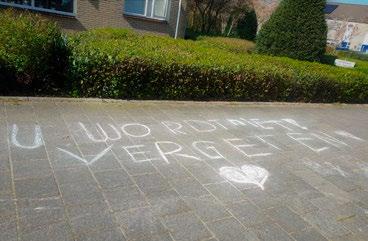 U WORDT NIET
VERGETEN